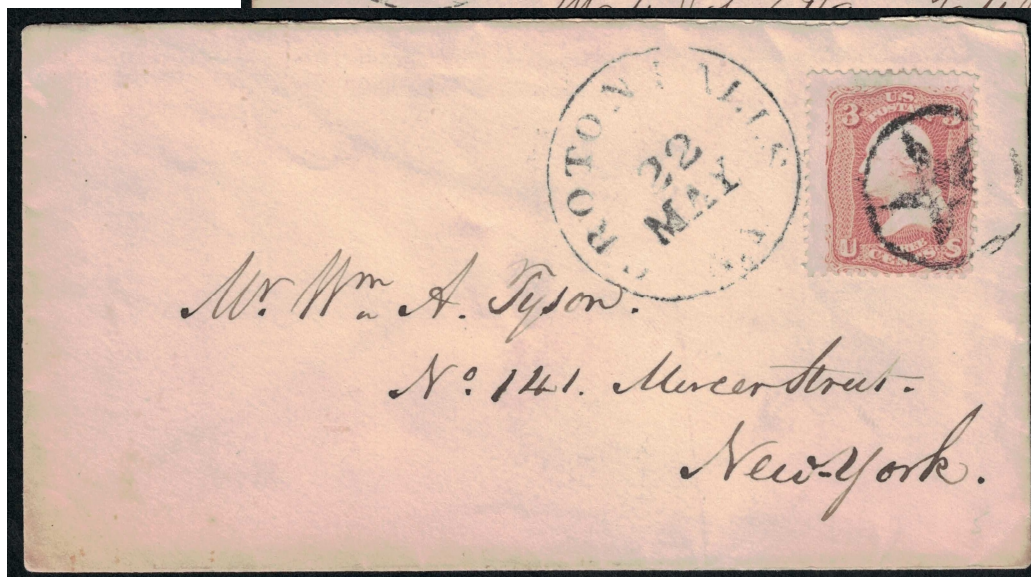 CROTON FALLS
22
MAY
N.Y
3 3
U.S.
POSTAGE
U S
THREE
CENTS
Mr. Wm A. Tyson.
No. 141. Mercer Street.
New-York.